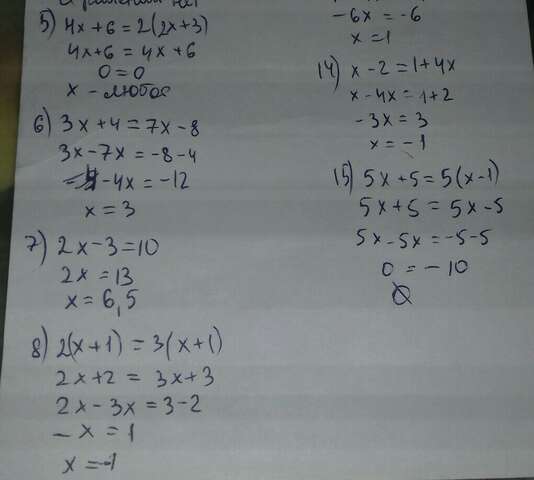 5) 4x + 6 = 2(2x+3)
4x+6 = 4x + 6
0 = 0
x - любое
6) 3x + 4 = 7x - 8
3x - 7x = -8 - 4
-4x = -12
x = 3
7) 2x - 3 = 10
2x = 13
x = 6,5
8) 2(x+1) = 3(x+1)
2x+2 = 3x+3
2x - 3x = 3-2
-x = 1
x = -1
-6x = -6
x = 1
14) x - 2 = 1 + 4x
x - 4x = 1+2
-3x = 3
x = -1
15) 5x + 5 = 5(x-1)
5x + 5 = 5x - 5
5x - 5x = -5 - 5
0 = -10
Ø